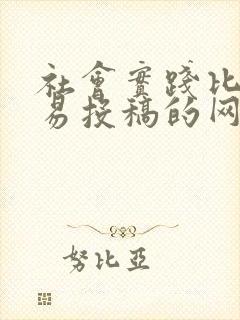 社會實踐比
易投稿的网
努比亞